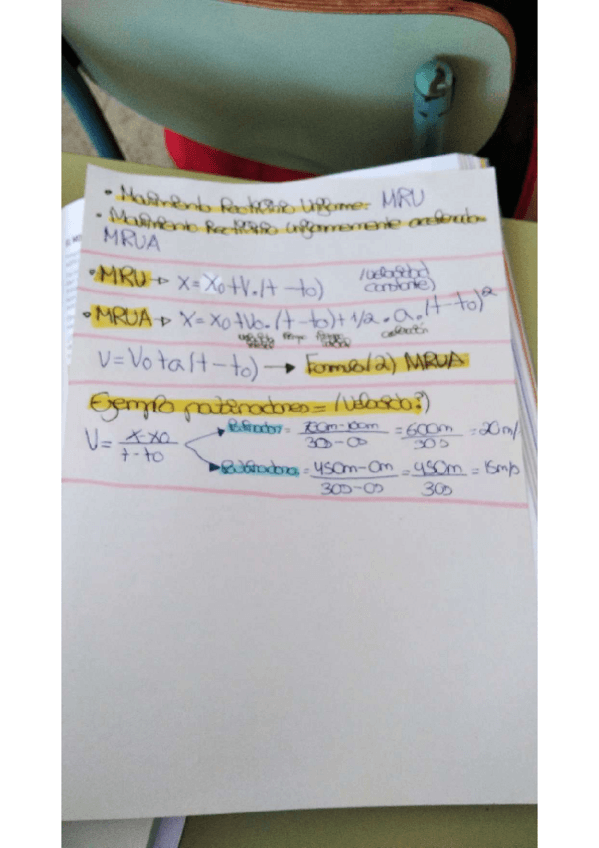 • Movimiento Rectilíneo Uniforme: MRU
• Movimiento Rectilíneo Uniformemente acelerado
MRUA
• MRU → X = X0 + V. (t - t0) (velocidad constante)
• MRUA → X = X0 + V0. (t - t0) + 1/2 . a. (t - t0)²
V = V0 + a (t - t0) → Formula (2) MRUA
Ejemplo patinadores = (Velocidad?)
V = x - x0 / t - t0
Patinador = 700m - 100m / 30s - 0s = 600m / 30s = 20m/
Patinadora = 450m - 0m / 30s - 0s = 450m / 30s = 15m/s